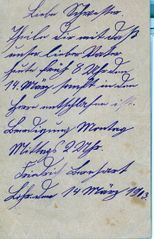 Liebe Schwester
Theile dir mit daß
unser lieber Vater
heute früh 8 Uhr den
14. März sanft in dem
Herrn entschlafen ist.
Beerdigung Montag
Mittags 2 Uhr.
14 März 19